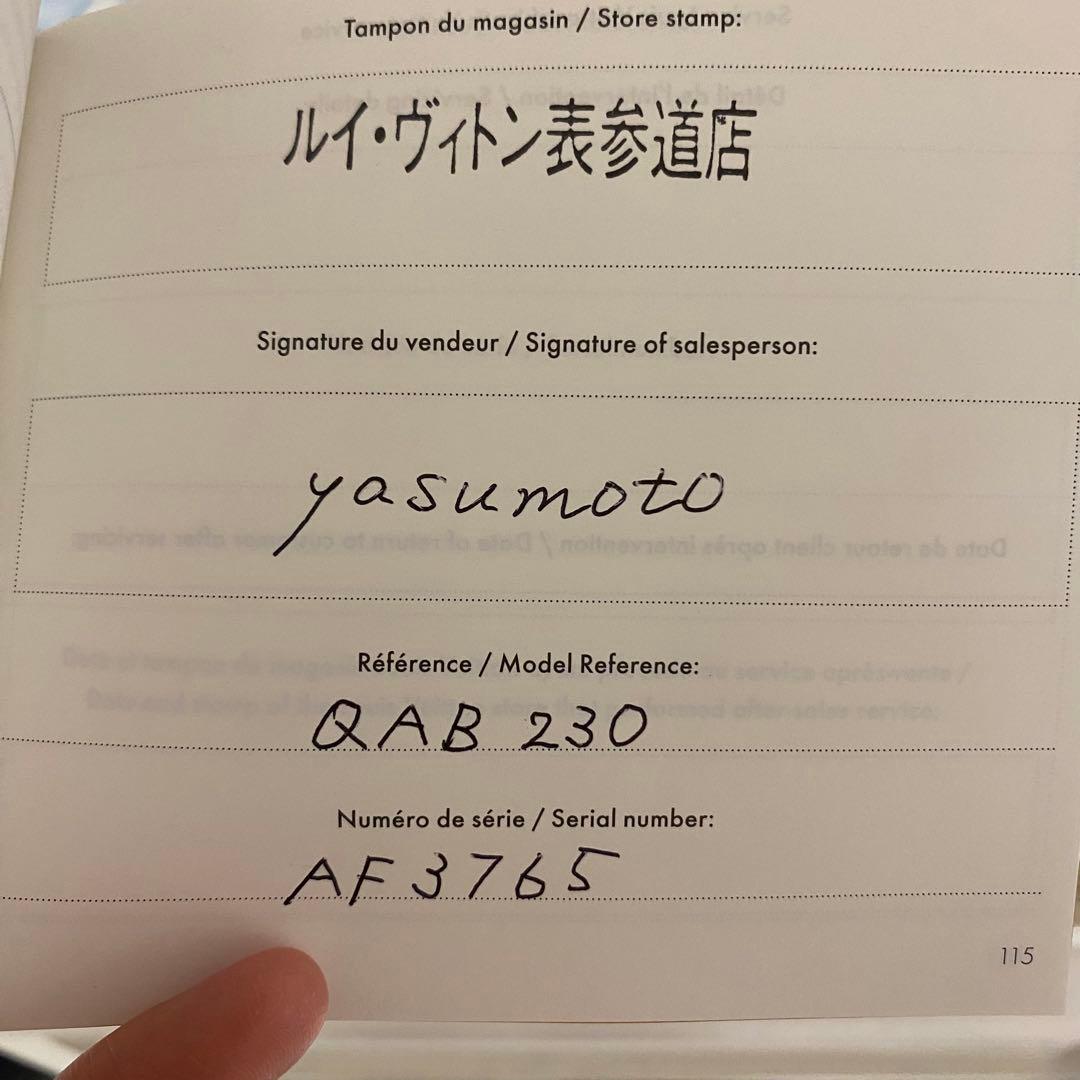 Tampon du magasin / Store stamp:
ルイ・ヴィトン表参道店
Signature du vendeur / Signature of salesperson:
yasumoto
Référence / Model Reference:
QAB 230
Numéro de série / Serial number:
AF3765
115